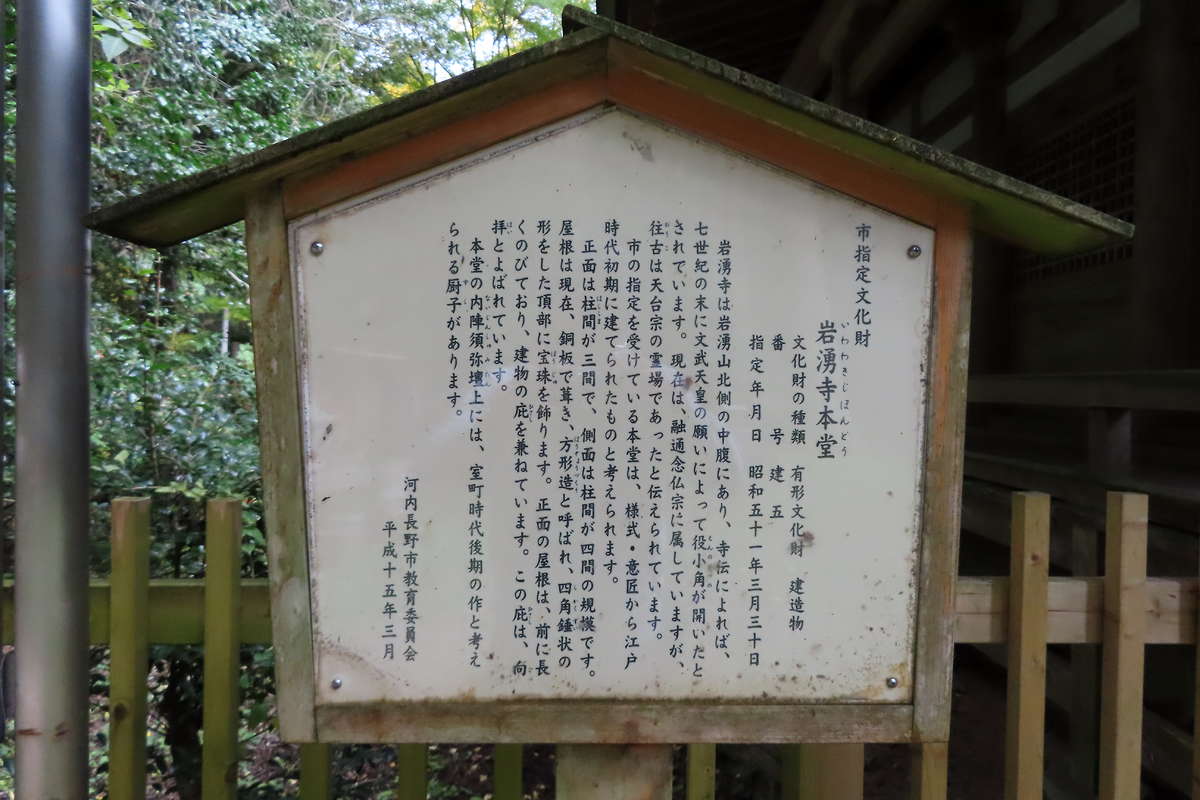 市指定文化財
岩湧寺本堂
いわわきじほんどう
文化財の種類 有形文化財 建造物
番号 建五
指定年月日 昭和五十一年三月三十日
岩湧寺は岩湧山北側の中腹にあり、寺伝によれば、
七世紀の末に文武天皇の願いによって役小角が開いたと
されています。現在は、融通念仏宗に属していますが、
往古は天台宗の霊場であったと伝えられています。
市の指定を受けている本堂は、様式・意匠から江戸
時代初期に建てられたものと考えられます。
正面は柱間が三間で、側面は柱間が四間の規模です。
屋根は現在、銅板で葺き、方形造と呼ばれ、四角錘状の
形をした頂部に宝珠を飾ります。正面の屋根は、前に長
くのびており、建物の庇を兼ねています。この庇は、向
拝とよばれています。
本堂の内陣須弥壇上には、室町時代後期の作と考え
られる厨子があります。
河内長野市教育委員会
平成十五年三月